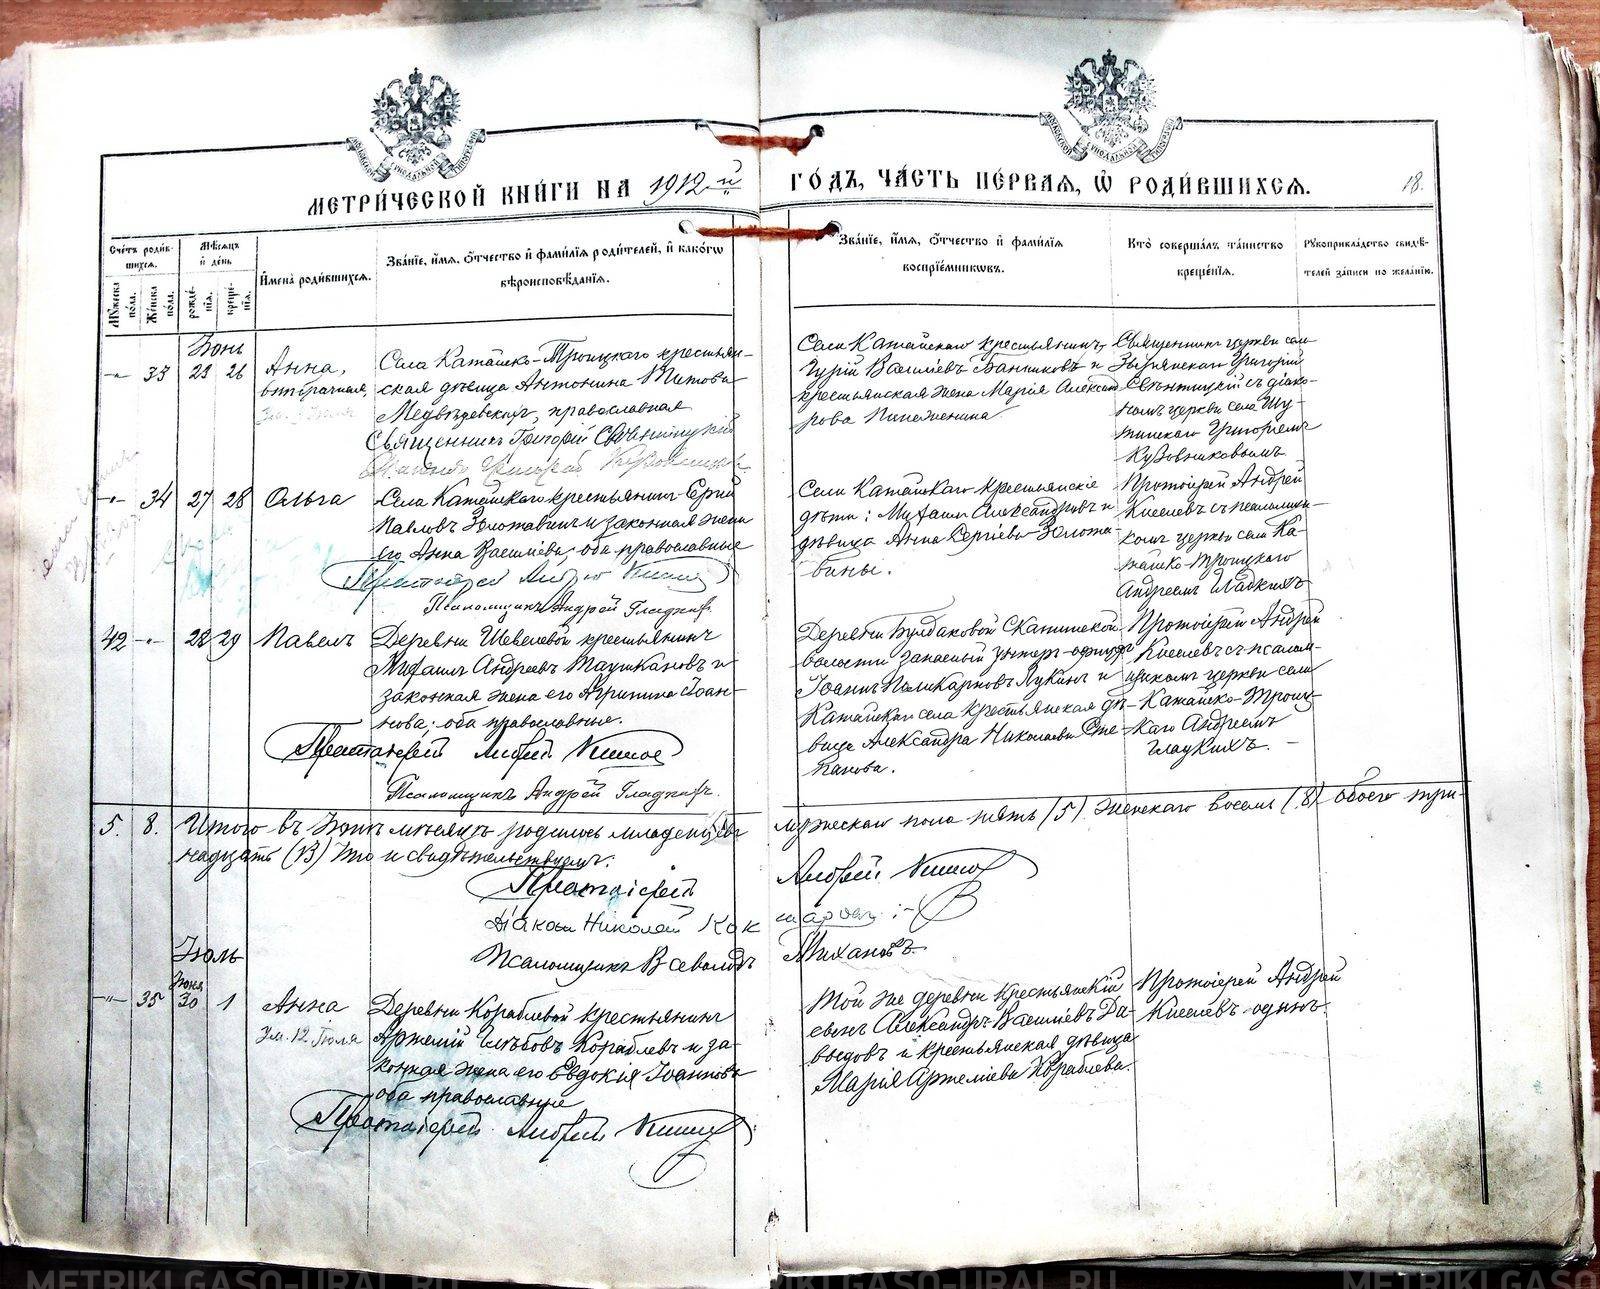 МЕТРИ́ЧЕСКОЙ КНИ́ГИ НА 1912-й ГО́ДЪ, ЧА́СТЬ ПЕ́РВАЯ, Ѡ҆ РОДИ́ВШИХСѦ.
18.
Сче́тъ роди́в-
шихсѧ.
Мꙋ́жеска по́ла.
Же́нска по́ла.
Мѣ́сѧцъ и҆ де́нь
рожде́нїѧ.
креще́нїѧ.
И҆мена̀ роди́вшихсѧ.
Зва́нїе, и҆́мѧ, ѻ҆́тчество и҆ фами́лїѧ роди́телей, и҆ како́гѡ
вѣроисповѣ́данїѧ.
Зва́нїе, и҆́мѧ, ѻ҆́тчество и҆ фами́лїѧ
воспрїе́мникѡвъ.
Кто̀ соверша́лъ та́инство
креще́нїѧ.
Рꙋкоприкла́дство свидѣ́-
телей за́писи по жела́нїю.
Іюнь
-"- 33 21 26
Анна,
внѣбрачная,
Села Катайско-Троицкаго крестьян-
ская дѣвица Антонина Титова
Медвѣдевскихъ, православная
Священникъ Григорій Свѣнтицкій
Села Катайскаго крестьянинъ
Гурій Васильевъ и
крестьянская жена Марія Александ
рова
Священникъ церкви села
Зырянскаго Григорій
Свѣнтицкій съ діако-
номъ церкви села Шу-
тинскаго Григоріемъ
Кузовниковымъ
-"- 34 27 28 Ольга
Села Катайскаго крестьянинъ Сергій
Павловъ Золотавинъ и законная жена
его Анна Васильева, оба православные
Протоіерей Андрей Киселевъ
Псаломщикъ Андрей Гладкихъ.
Села Катайскаго крестьянскіе
дѣти: Михаилъ Александровъ и
дѣвица Анна Сергіева Золота-
вины.
Протоіерей Андрей
Киселевъ съ псаломщи-
комъ церкви села Ка-
тайско-Троицкаго
Андреемъ Гладкихъ
42 -"- 28 29 Павелъ
Деревни Шевелевой крестьянинъ
Михаилъ Андреевъ Таушкановъ и
законная жена его Агрипина Іоан-
нова; оба православные.
Протоіерей Андрей Киселевъ
Псаломщикъ Андрей Гладкихъ.
Деревни Бурдаковой
волости запасный унтеръ-офицеръ
Іоаннъ Поликарповъ Лукинъ и
Катайскаго села крестьянская дѣ-
вица Александра Николаева Сте-
панова.
Протоіерей Андрей
Киселевъ съ псалом-
щикомъ церкви села
Катайско-Троиц-
каго Андреемъ
Гладкихъ. -
5. 8. Итого въ Іюнѣ мѣсяцѣ родилось младенцевъ мужескаго пола пять (5) женскаго восемь (8) обоего три-
надцать (13) что и свидѣтельствуемъ:
Протоіерей Андрей Киселевъ
Діаконъ Николай Кокшаровъ
Псаломщикъ Всеволодъ Михановъ.
Іюль
Іюня
-"- 35 30 1 Анна
Ум. 12 Іюля
Деревни Кораблевой крестьянинъ
Артемій Глѣбовъ Кораблевъ и за-
конная жена его Евдокія Іоаннова
оба православные
Протоіерей Андрей Киселевъ
Той же деревни крестьянскій
сынъ Александръ Васильевъ Да-
выдовъ и крестьянская дѣвица
Марія Артеміева Кораблева.
Протоіерей Андрей
Киселевъ одинъ.
METRIKI.GASO-URAL.RU
METRIKI.GASO-URAL.RU
METRIKI.GASO